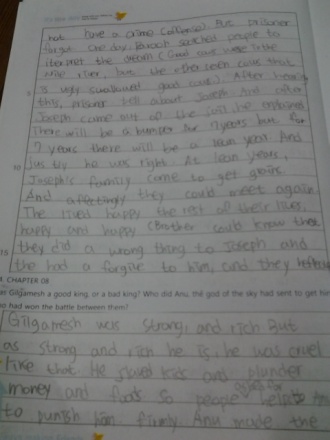 not have a crime (offense). But prisoner
forgot. One day, Paraoh searched people to
iterpret the dream (Good cows were in the
nile river, but the other seven cows that
is ugly swallowed good cows). After hearing
this, prisoner tell about Joseph. And after
Joseph came out of the jail, he explained
There will be a bumper for 7 years but for
7 years there will be a lean year. And
he was right. At lean years,
Joseph's family came to get grains.
And affectingly they could meet again.
The lived happy the rest of their lives,
happy and happy (Brother could know that
they did a wrong thing to Joseph and
the had a forgive to him, and they
CHAPTER 08
Gilgamesh a good king, or a bad king? Who did Anu, the god of the sky had sent to get him
who had won the battle between them?
Gilgamesh was strong, and rich But
as strong and rich he is, he was cruel
like that. He slaved kids and plunder
money and foods so people
to punish him firmly Anu made the